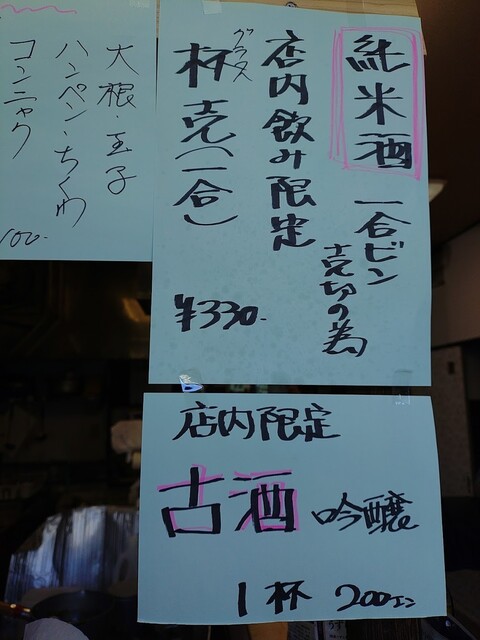 純米酒
一合ビン
売切の為
店内飲み限定
グラス
杯売(一合)
¥330-
大根・玉子
ハンペン・ちくわ
コンニャク
100-
店内限定
古酒 吟醸
1杯 200エン